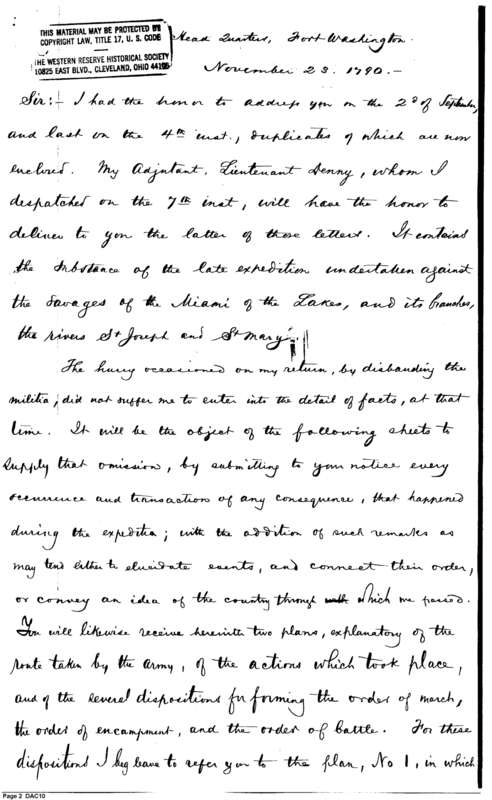 THIS MATERIAL MAY BE PROTECTED BY
COPYRIGHT LAW, TITLE 17, U. S. CODE
THE WESTERN RESERVE HISTORICAL SOCIETY
10825 EAST BLVD., CLEVELAND, OHIO 44106
Head Quarters, Fort Washington.
November 23. 1790.-
Sir:- I had the honor to address you on the 2d of September,
and last on the 4th inst., duplicates of which are now
enclosed. My Adjutant, Lieutenant Denny, whom I
despatched on the 7th inst, will have the honor to
deliver to you the latter of those letters. It contains
the substance of the late expedition undertaken against
the Savages of the Miami of the Lakes, and its branches,
the rivers St Joseph and St Mary.
The hurry occasioned on my return, by disbanding the
militia, did not suffer me to enter into the detail of facts, at that
time. It will be the object of the following sheets to
supply that omission, by submitting to your notice every
occurrence and transaction of any consequence, that happened
during the expedition; with the addition of such remarks as
may tend either to elucidate events, and connect their order,
or convey an idea of the country through which we passed.
You will likewise receive herewith two plans, explanatory of the
route taken by the army, of the actions which took place,
and of the several dispositions for forming the order of march,
the order of encampment, and the order of battle. For these
dispositions I beg leave to refer you to the plan, No 1, in which
Page 2 DAC10